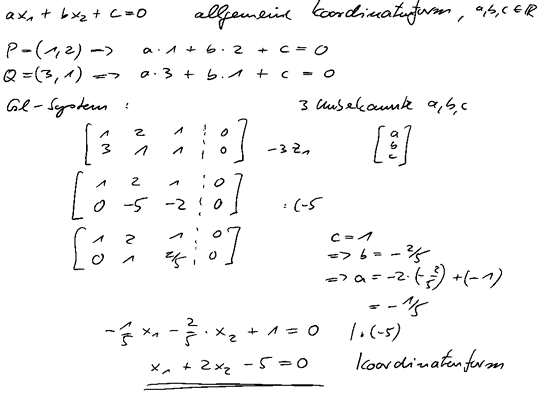 ax₁ + bx₂ + c = 0 allgemeine Koordinatenform, a,b,c ∈ ℝ
P = (1,2) => a·1 + b·2 + c = 0
Q = (3,1) => a·3 + b·1 + c = 0
Gl-System : 3 Unbekannte a,b,c
[ 1 2 1 ¦ 0 ] [ a ]
[ 3 1 1 ¦ 0 ] -3Z₁ [ b ]
[ c ]
[ 1 2 1 ¦ 0 ]
[ 0 -5 -2 ¦ 0 ] :(-5
[ 1 2 1 ¦ 0 ] c = 1
[ 0 1 2/5 ¦ 0 ] => b = -2/5
=> a = -2·(-2/5) + (-1)
= -1/5
-1/5 x₁ - 2/5 · x₂ + 1 = 0 |·(-5)
x₁ + 2x₂ - 5 = 0 Koordinatenform